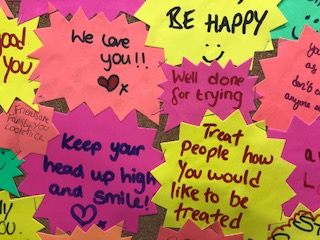 BE HAPPY
good
you
We love
you!!
x
Well done
for trying
you
as
don't
anyone
Keep your
head up high
and smile!
x
Treat
People how
You would
like to be
treated